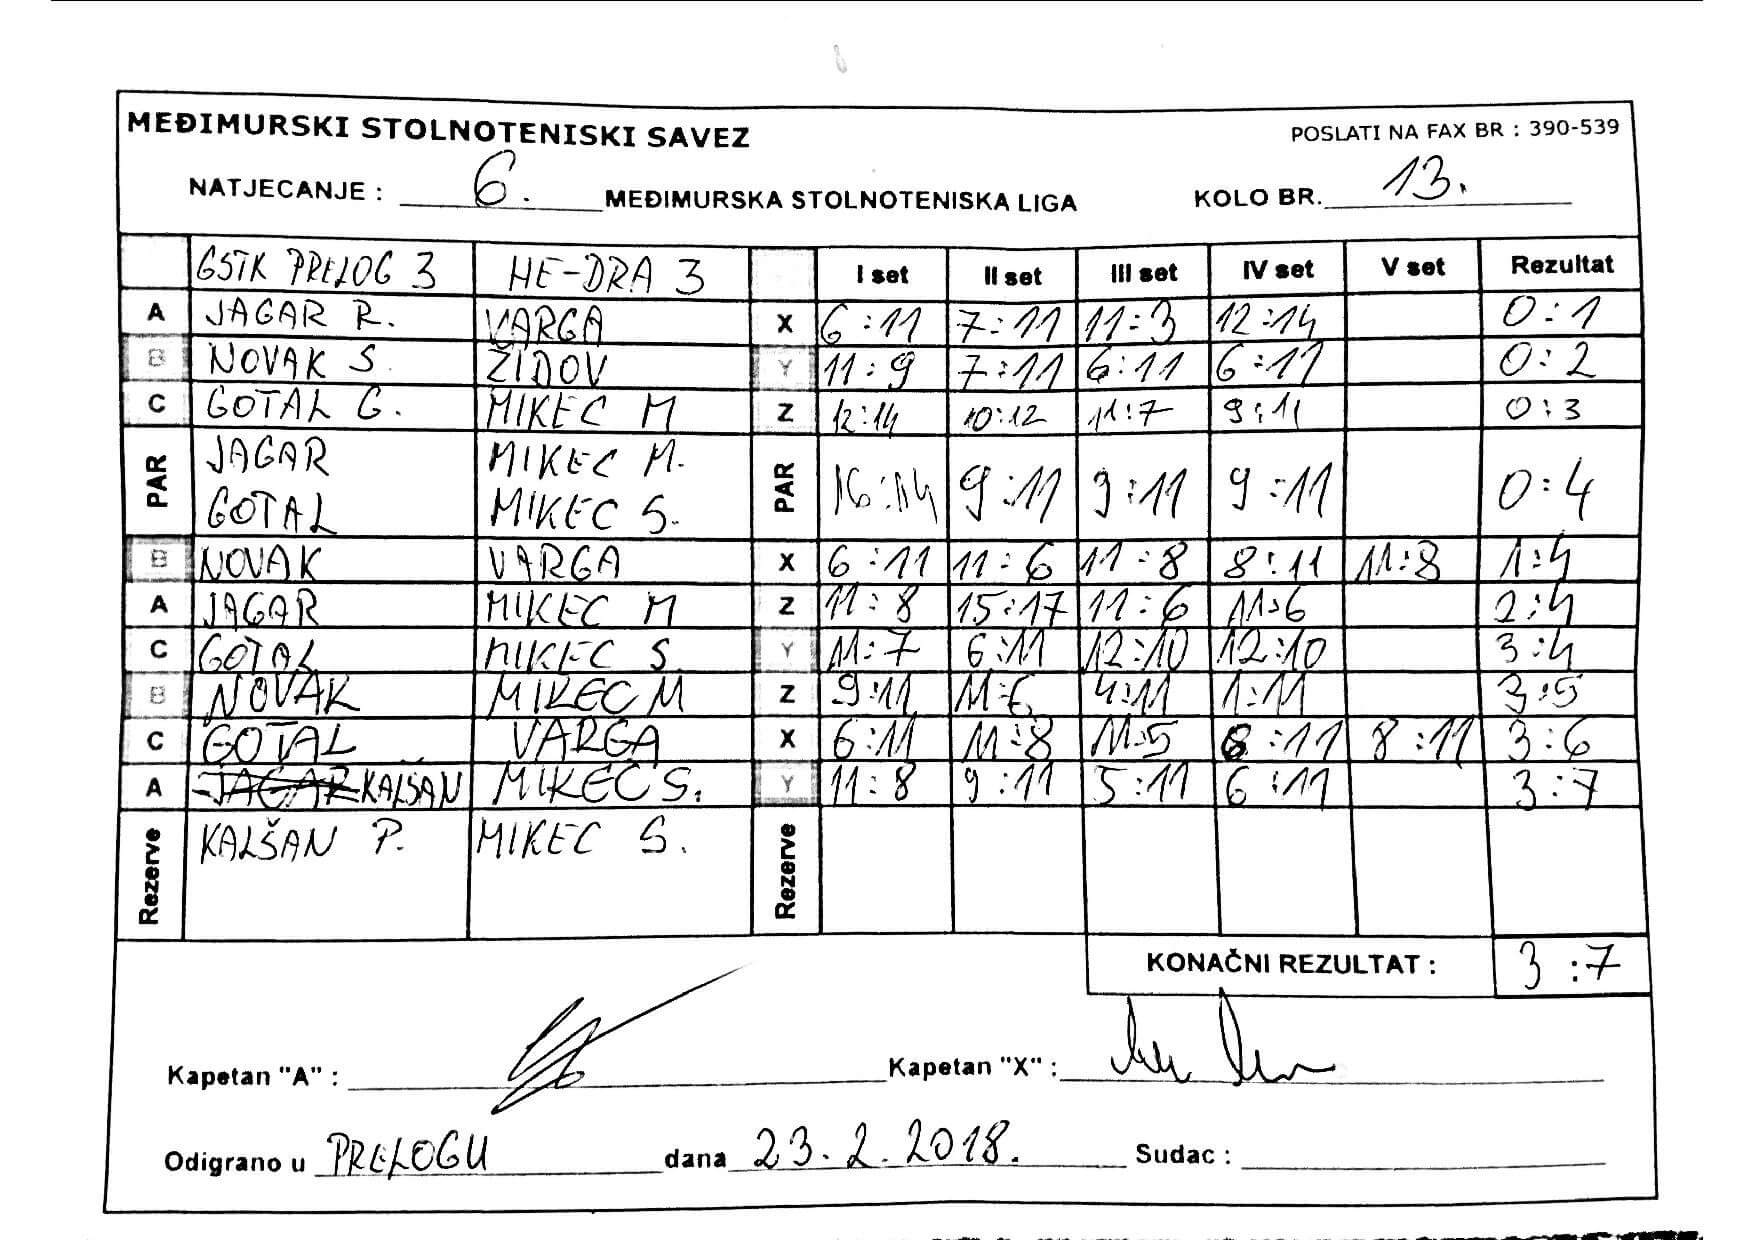 MEĐIMURSKI STOLNOTENISKI SAVEZ POSLATI NA FAX BR : 390-539
NATJECANJE : 6. MEĐIMURSKA STOLNOTENISKA LIGA KOLO BR. 13.
GSTK PRELOG 3 HE-DRA 3 I set II set III set IV set V set Rezultat
A JAGAR R. VARGA X 6:11 7:11 11:3 12:14 0:1
B NOVAK S ŽIDOV Y 11:9 7:11 6:11 6:11 0:2
C GOTAL G. MIKEC M Z 12:14 10:12 11:7 9:11 0:3
PAR JAGAR MIKEC M. PAR 16:14 9:11 9:11 9:11 0:4
GOTAL MIKEC S.
B NOVAK VARGA X 6:11 11:6 11:8 8:11 11:8 1:4
A JAGAR MIKEC M Z 11:8 15:17 11:6 11:6 2:4
C GOTAL MIKEC S. Y 11:7 6:11 12:10 12:10 3:4
B NOVAK MIKEC M Z 9:11 11:6 4:11 1:11 3:5
C GOTAL VARGA X 6:11 11:8 11:5 8:11 8:11 3:6
A JAGAR KALŠAN MIKEC S. Y 11:8 9:11 5:11 6:11 3:7
Rezerve KALŠAN P. MIKEC S. Rezerve
KONAČNI REZULTAT : 3:7
Kapetan "A" : Kapetan "X" :
Odigrano u PRELOGU dana 23.2.2018. Sudac :